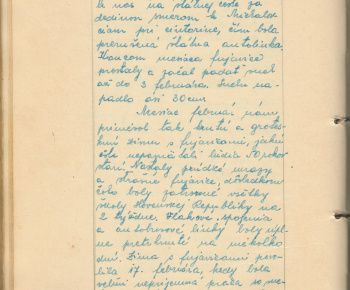 k nás na štátnej ceste za
dedinou smerom k Michalov
ciam pri cintoríne, čím bola
prerušená štátna autolinka.
Koncom mesiaca fujavice
prestaly a začal padať sneh
až do 3 februára. Snehu na-
padlo asi 30 cm.
Mesiac február nám
priniesol tak krutú a grotes-
knú zimu s fujavicami, jakú
ešte nepamätali ľudia 50 rokov
starí. Nastaly prudké mrazy
a strašné fujavice, dôsledkom
čoho boly zatvorené všetky
školy Slovenskej Republiky na
2 týždne. Vlakové spojenia
a autobusové linky boly úpl-
ne pretrhnuté na niekoľko
dní. Zima s fujavicami
17. februára, kedy bola
veľmi nepríjemná práca so